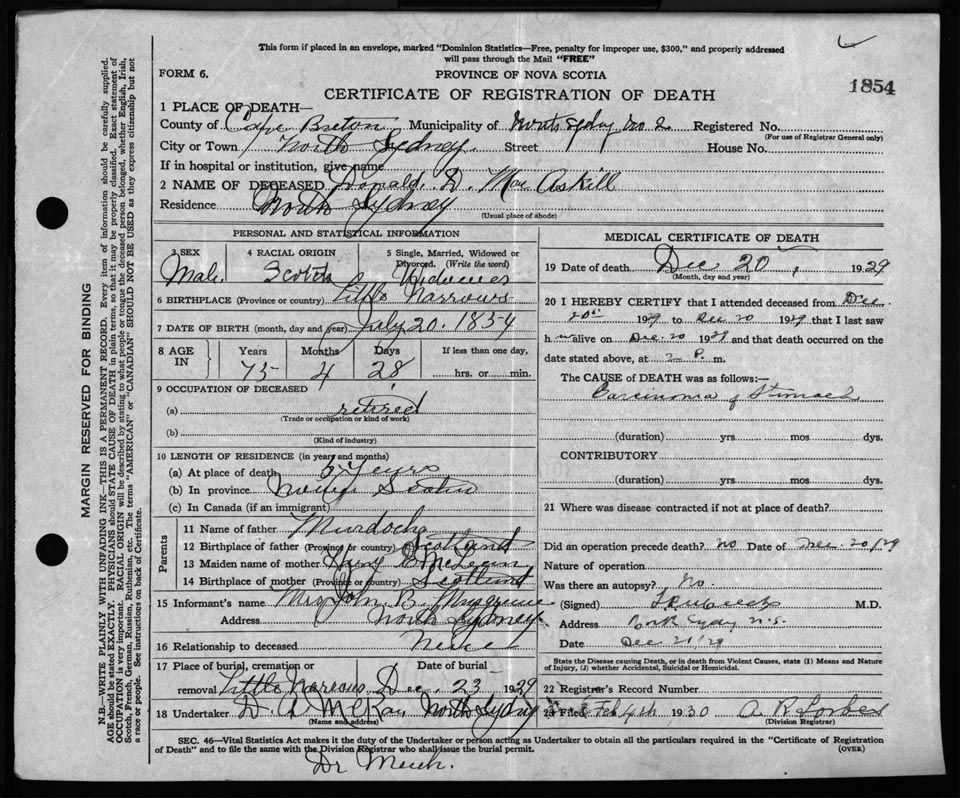 This form if placed in an envelope, marked "Dominion Statistics—Free, penalty for improper use, $300," and properly addressed
will pass through the Mail "FREE"
FORM 6.
PROVINCE OF NOVA SCOTIA
1854
CERTIFICATE OF REGISTRATION OF DEATH
1 PLACE OF DEATH—
County of Cape Breton Municipality of North Sydney No 2 Registered No.
(For use of Registrar General only)
City or Town North Sydney Street House No.
If in hospital or institution, give name
2 NAME OF DECEASED Ronald. D. Mac Askill
Residence North Sydney
(Usual place of abode)
PERSONAL AND STATISTICAL INFORMATION
3 SEX 4 RACIAL ORIGIN 5 Single, Married, Widowed or
Divorced. (Write the word)
Male Scotch Widower
6 BIRTHPLACE (Province or country) Little Narrows
7 DATE OF BIRTH (month, day and year) July 20. 1854
8 AGE IN Years Months Days If less than one day,
75 4 28 hrs. or min.
9 OCCUPATION OF DECEASED
(a) retired
(Trade or occupation or kind of work)
(b)
(Kind of industry)
10 LENGTH OF RESIDENCE (in years and months)
(a) At place of death 5 Years
(b) In province Nova Scotia
(c) In Canada (if an immigrant)
Parents
11 Name of father Murdoch
12 Birthplace of father (Province or country) Scotland
13 Maiden name of mother McLean
14 Birthplace of mother (Province or country) Scotland
15 Informant's name Mrs John B.
Address North Sydney
16 Relationship to deceased Niece
17 Place of burial, cremation or Date of burial
removal Little Narrows Dec. 23 1929
18 Undertaker D. A McKay North Sydney
(Name and address)
MEDICAL CERTIFICATE OF DEATH
19 Date of death Dec 20, 1929
(Month, day and year)
20 I HEREBY CERTIFY that I attended deceased from Dec
20th 1929 to Dec 20 1929 that I last saw
h m alive on Dec. 20 1929 and that death occurred on the
date stated above, at 2 P. m.
The CAUSE of DEATH was as follows:—
Carcinoma of Stomach
(duration) yrs. mos. dys.
CONTRIBUTORY
(duration) yrs mos dys.
21 Where was disease contracted if not at place of death?
Did an operation precede death? no Date of Dec. 20/29
Nature of operation
Was there an autopsy? No.
(Signed) M.D.
Address North Sydney N.S.
Date Dec 21/29
State the Disease causing Death, or in death from Violent Causes, state (1) Means and Nature
of Injury, (2) whether Accidental, Suicidal or Homicidal.
22 Registrar's Record Number
23 Filed Feb 4th 1930 A. R. Forbes
(Division Registrar)
SEC. 46—Vital Statistics Act makes it the duty of the Undertaker or person acting as Undertaker to obtain all the particulars required in the "Certificate of Registration
of Death" and to file the same with the Division Registrar who shall issue the burial permit. (OVER)
Dr Meech.
MARGIN RESERVED FOR BINDING
N.B.—WRITE PLAINLY WITH UNFADING INK—THIS IS A PERMANENT RECORD. Every item of information should be carefully supplied.
AGE should be stated EXACTLY. PHYSICIANS should STATE CAUSE OF DEATH in plain terms, so that it may be properly classified. Exact statement of
OCCUPATION is very important. RACIAL ORIGIN will be described by stating to what people or tongue the deceased person belonged, whether English, Irish,
Scotch, French, German, Russian, Ruthenian, etc. The terms "AMERICAN" or "CANADIAN" SHOULD NOT BE USED as they express citizenship but not
a race or people. See instructions on back of Certificate.